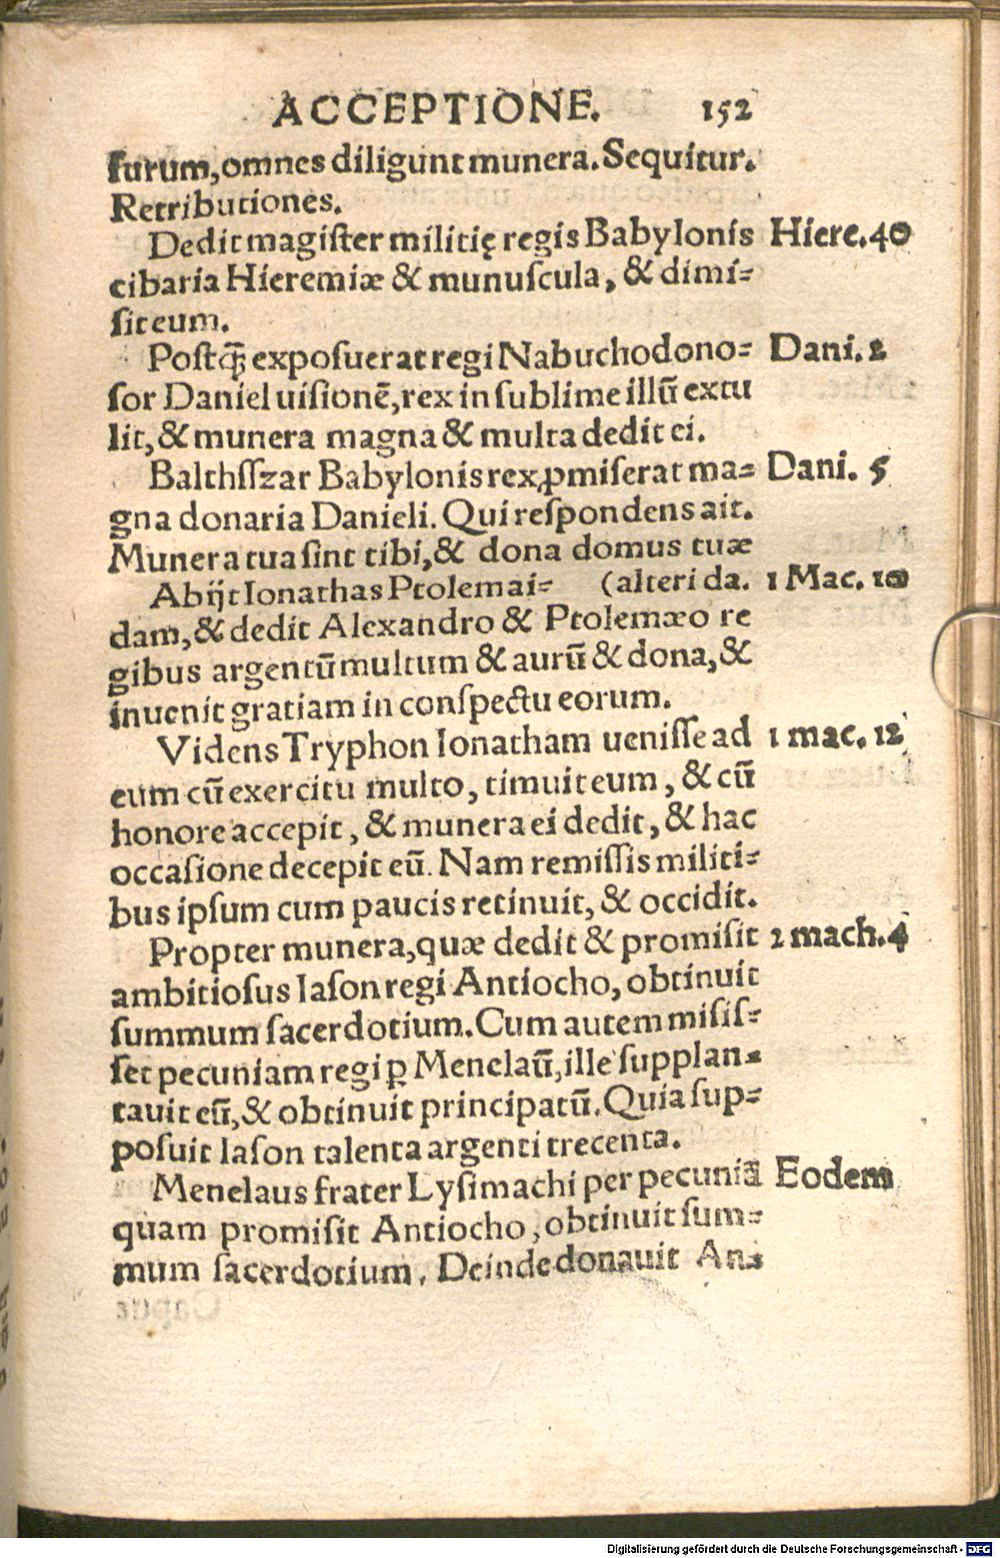 ACCEPTIONE. 152
furum, omnes diligunt munera. Sequitur.
Retributiones.
Dedit magiſter militię regis Babylonis Hiere. 40
cibaria Hieremiæ & munuſcula, & dimi-
ſit eum.
Poſtq̃ expoſuerat regi Nabuchodono- Dani. 2
ſor Daniel uiſionē, rex in ſublime illū extu
lit, & munera magna & multa dedit ei.
Balthſſzar Babylonis rex, ꝓmiſerat ma- Dani. 5
gna donaria Danieli. Qui reſpondens ait.
Munera tua ſint tibi, & dona domus tuæ
Abijt Ionathas Ptolemai- (alteri da. 1 Mac. 10
dam, & dedit Alexandro & Ptolemæo re
gibus argentū multum & aurū & dona, &
inuenit gratiam in conſpectu eorum.
Videns Tryphon Ionatham ueniſſe ad 1 mac. 12
eum cū exercitu multo, timuit eum, & cū
honore accepit, & munera ei dedit, & hac
occaſione decepit eū. Nam remiſſis militi-
bus ipſum cum paucis retinuit, & occidit.
Propter munera, quæ dedit & promiſit 2 mach. 4
ambitioſus Iaſon regi Antiocho, obtinuit
ſummum ſacerdotium. Cum autem miſiſ-
ſet pecuniam regi ꝑ Menelaū, ille ſupplan-
tauit eū, & obtinuit principatū. Quia ſup-
poſuit Iaſon talenta argenti trecenta.
Menelaus frater Lyſimachi per pecuniā Eodem
quam promiſit Antiocho, obtinuit ſum-
mum ſacerdotium. Deinde donauit An-
Digitalisierung gefördert durch die Deutsche Forschungsgemeinschaft - DFG